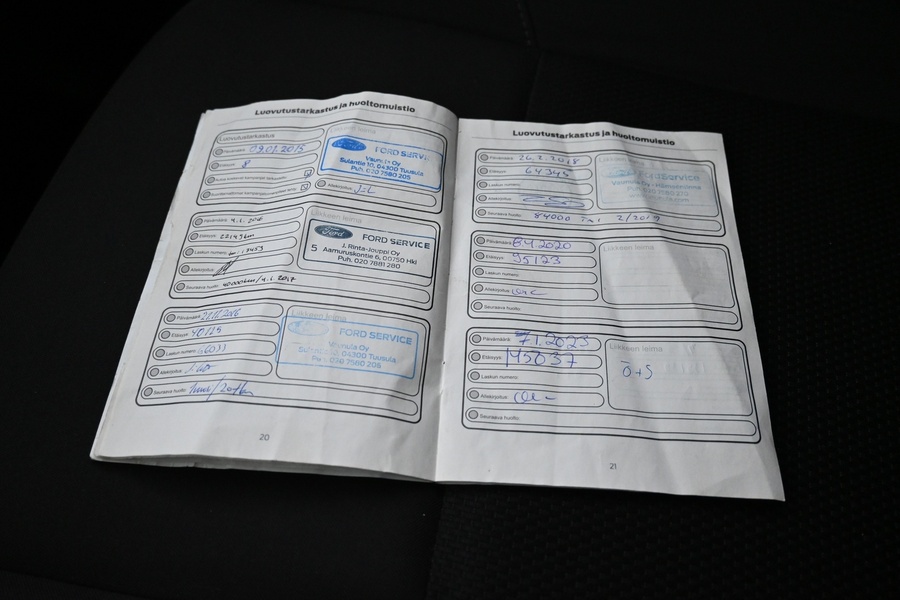 Luovutustarkastus ja huoltomuistio
Luovutustarkastus
Päivämäärä 09.01.2015
Etäisyys 8
Liikkeen leima
FORD SERVICE
Vaunula Oy
Sulantie 10, 04300 Tuusula
Puh. 020 7580 205
Allekirjoitus
Päivämäärä 4.1.2016
Etäisyys 22149 km
Laskun numero
Allekirjoitus
Seuraava huolto 40000km/4.1.2017
Liikkeen leima
Ford FORD SERVICE
5 J. Rinta-Jouppi Oy
Aamuruskontie 6, 00750 Hki
Puh. 020 7881 280
Päivämäärä 21.11.2016
Etäisyys 40125
Laskun numero
Allekirjoitus
Seuraava huolto
Liikkeen leima
FORD SERVICE
Vaunula Oy
Sulantie 10, 04300 Tuusula
Puh. 020 7580 205
20
Luovutustarkastus ja huoltomuistio
Päivämäärä 26.2.2018
Etäisyys 64345
Laskun numero
Allekirjoitus
Seuraava huolto 84000 TAI 2/2019
Liikkeen leima
Ford Service
Päivämäärä 8.4.2020
Etäisyys 95123
Laskun numero
Allekirjoitus
Seuraava huolto
Liikkeen leima
Päivämäärä 7.1.2023
Etäisyys 145037
Laskun numero
Allekirjoitus
Seuraava huolto
Liikkeen leima
O+S
21